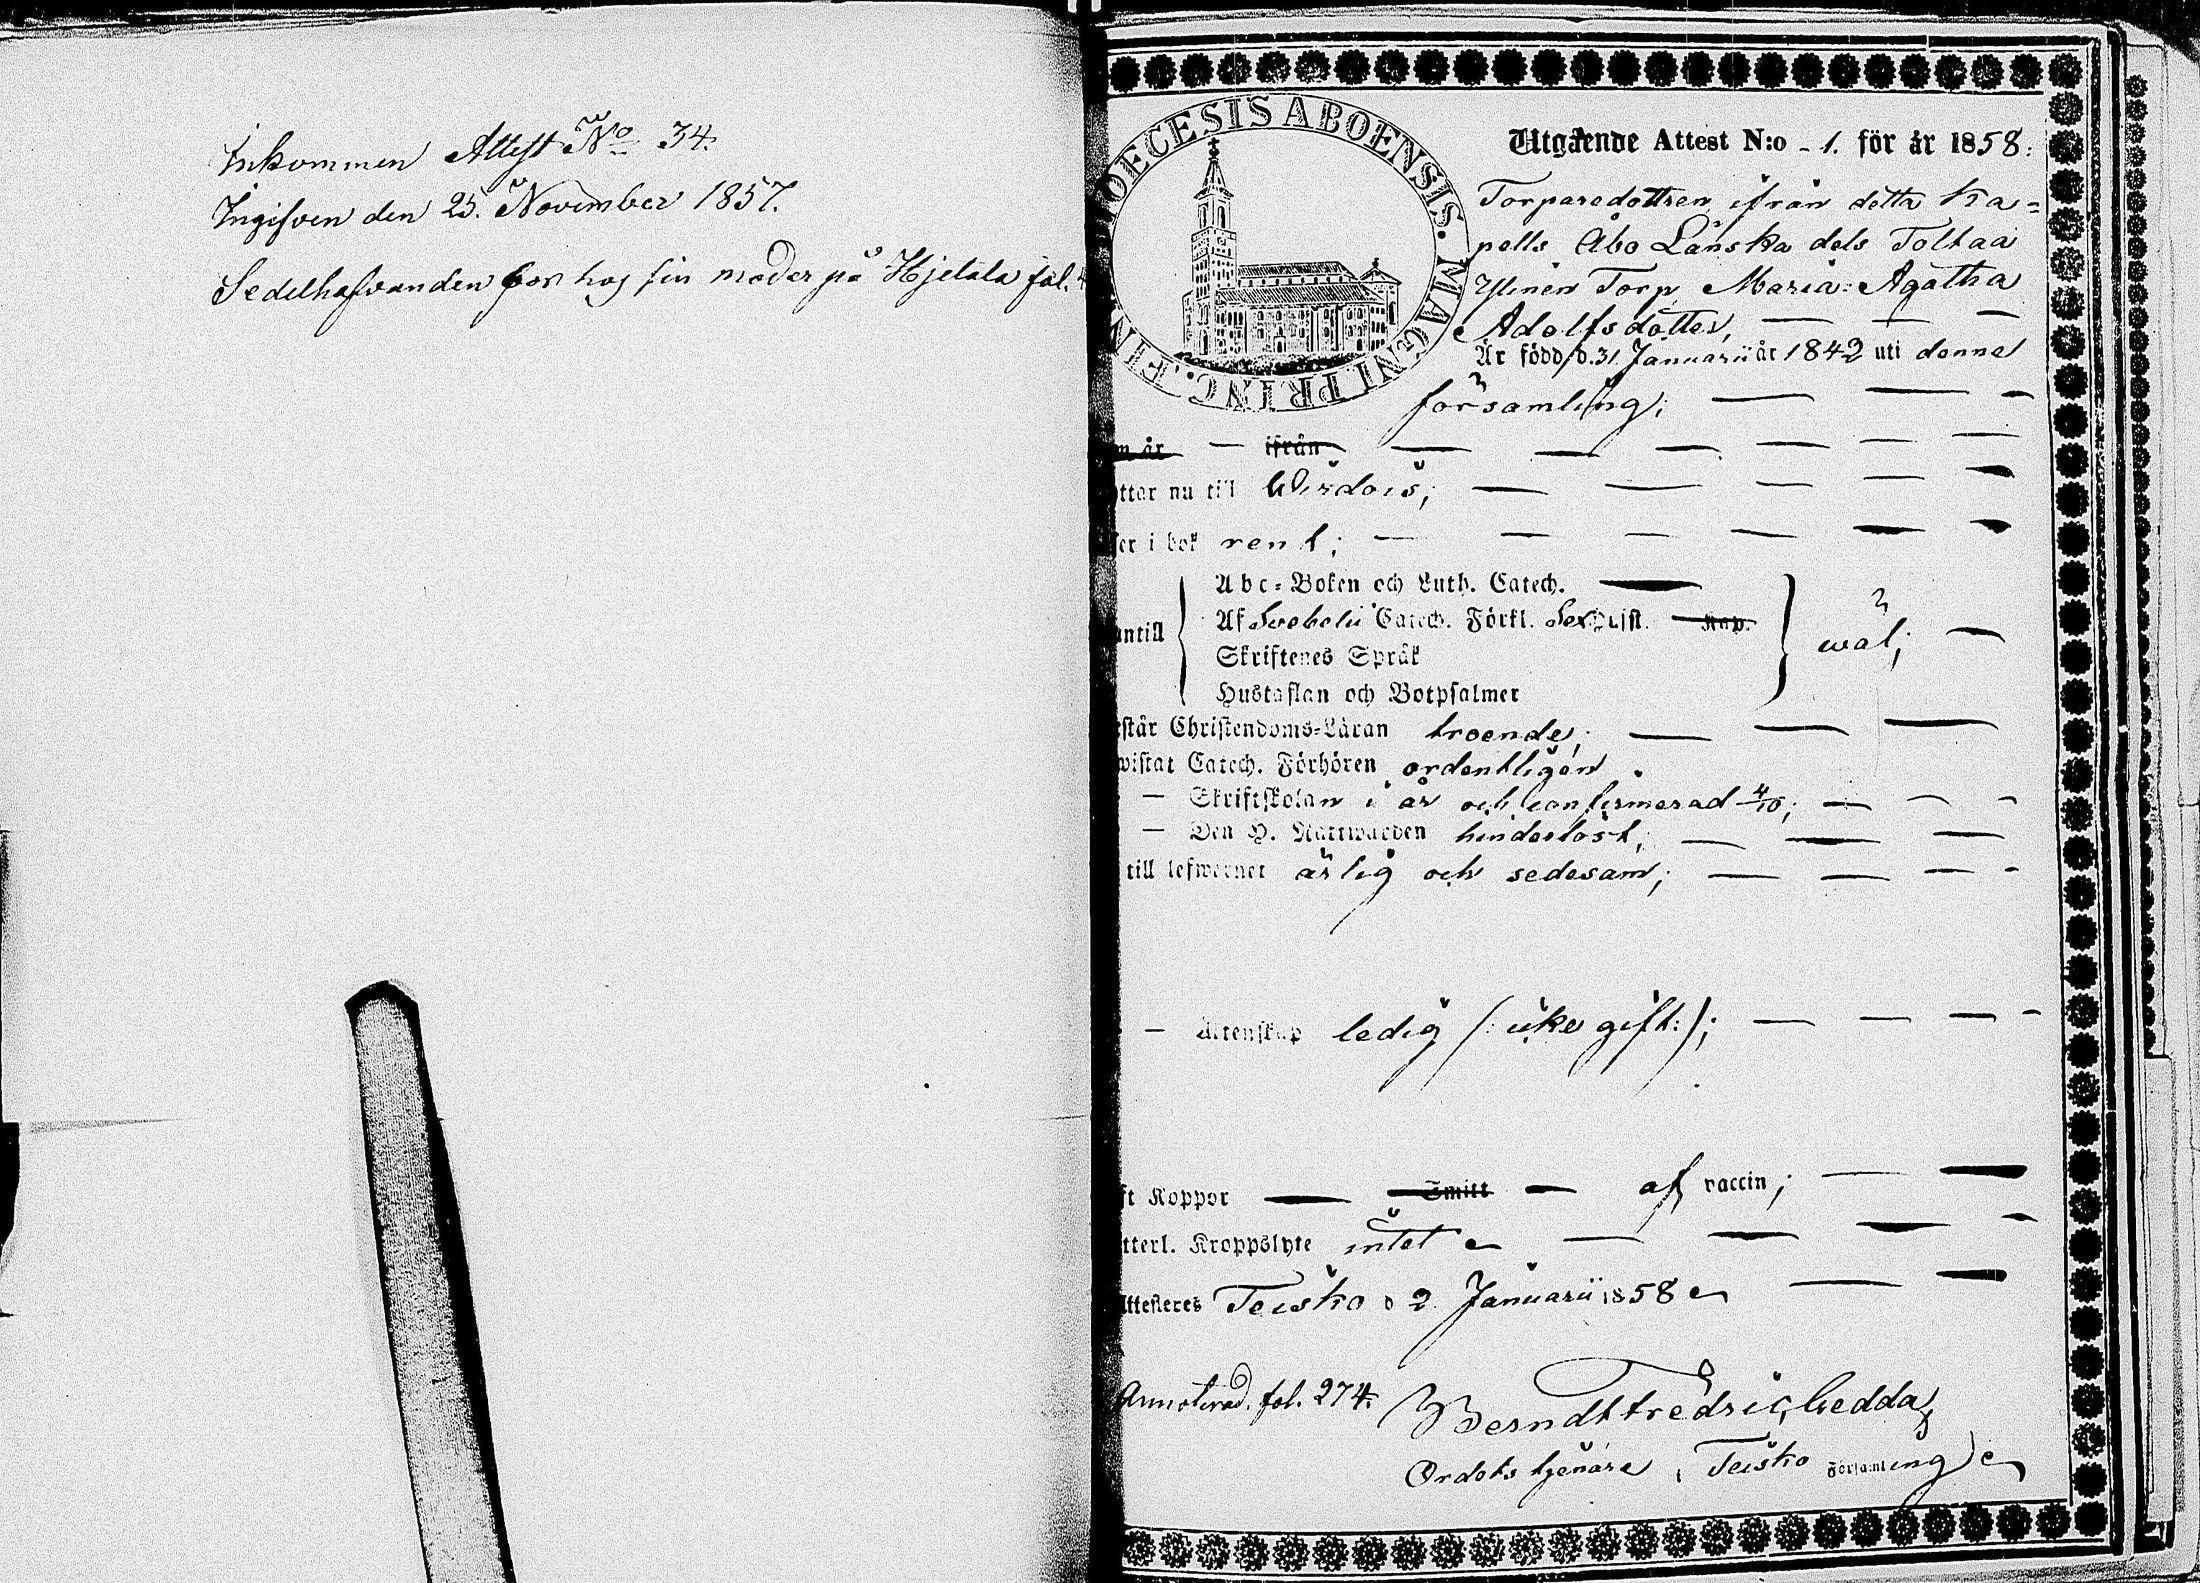 Inkommen Attest No 34.
Ingifven den 25. November 1857.
Sedelhafvanden bor hos sin moder på Hjelala fol.
DIOECESIS ABOENSIS. MAGNI PRINC. FIN
Utgående Attest N:o - 1. för år 1858:
Torparedottren ifrån detta Ka=
pells Åbo Länska dels Toltaa
Ylinen Torp Maria Agatha
Adolfsdotter,
Är född d. 31 Januarii år 1842 uti denna
församling;
m år — ifrån
ttar nu till Wirdois;
ser i bok rent;
Abc-Boken och Luth. Catech.
Af Svebelii Catech. Förkl. Sex Hufst. Kap.
antill
wäl;
Skriftenes Språk
Hustaflan och Botpsalmer
rstår Christendoms-Läran troende;
wistat Catech. Förhören ordentligen
— Skriftskolan i år och confirmerad 4/10;
— Den H. Nattwarden hinderlöst;
till lefwernet ärlig och sedesam;
— Äktenskap ledig (: icke gift :);
ft Koppor — Smitt — af vaccin;
tterl. Kroppslyte intet
Attesteres Teisko d 2 Januarii 1858
Annoterad. fol. 274.
Berndt Fredric Gedda,
Ordets tjenare i Teisko Församling